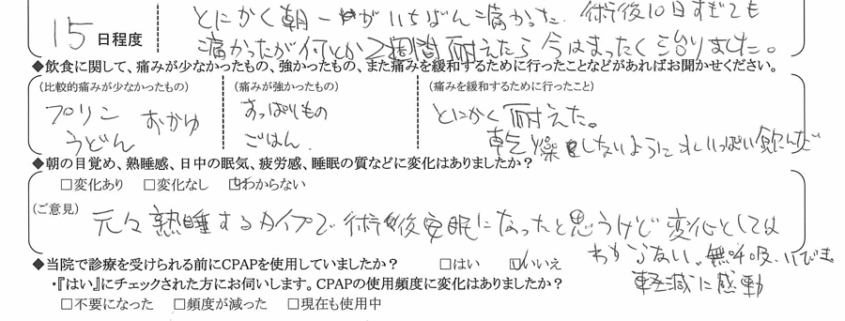 とにかく朝一番がいちばん痛かった。術後10日すぎても
15 日程度
痛かったが何とか2週間耐えたら今はまったく治りました。
◆飲食に関して、痛みが少なかったもの、強かったもの、また痛みを緩和するために行ったことなどがあればお聞かせください。
(比較的痛みが少なかったもの) (痛みが強かったもの) (痛みを緩和するために行ったこと)
プリン おかゆ すっぱいもの とにかく耐えた。
うどん ごはん 乾燥しないように水いっぱい飲んだ
◆朝の目覚め、熟睡感、日中の眠気、疲労感、睡眠の質などに変化はありましたか?
□変化あり □変化なし ☑わからない
(ご意見) 元々熟睡するタイプで術後安眠になったと思うけど変化としては
わからない。無呼吸、いびき
◆当院で診療を受けられる前にCPAPを使用していましたか? □はい ☑いいえ
軽減に感動
・『はい』にチェックされた方にお伺いします。CPAPの使用頻度に変化はありましたか?
□不要になった □頻度が減った □現在も使用中